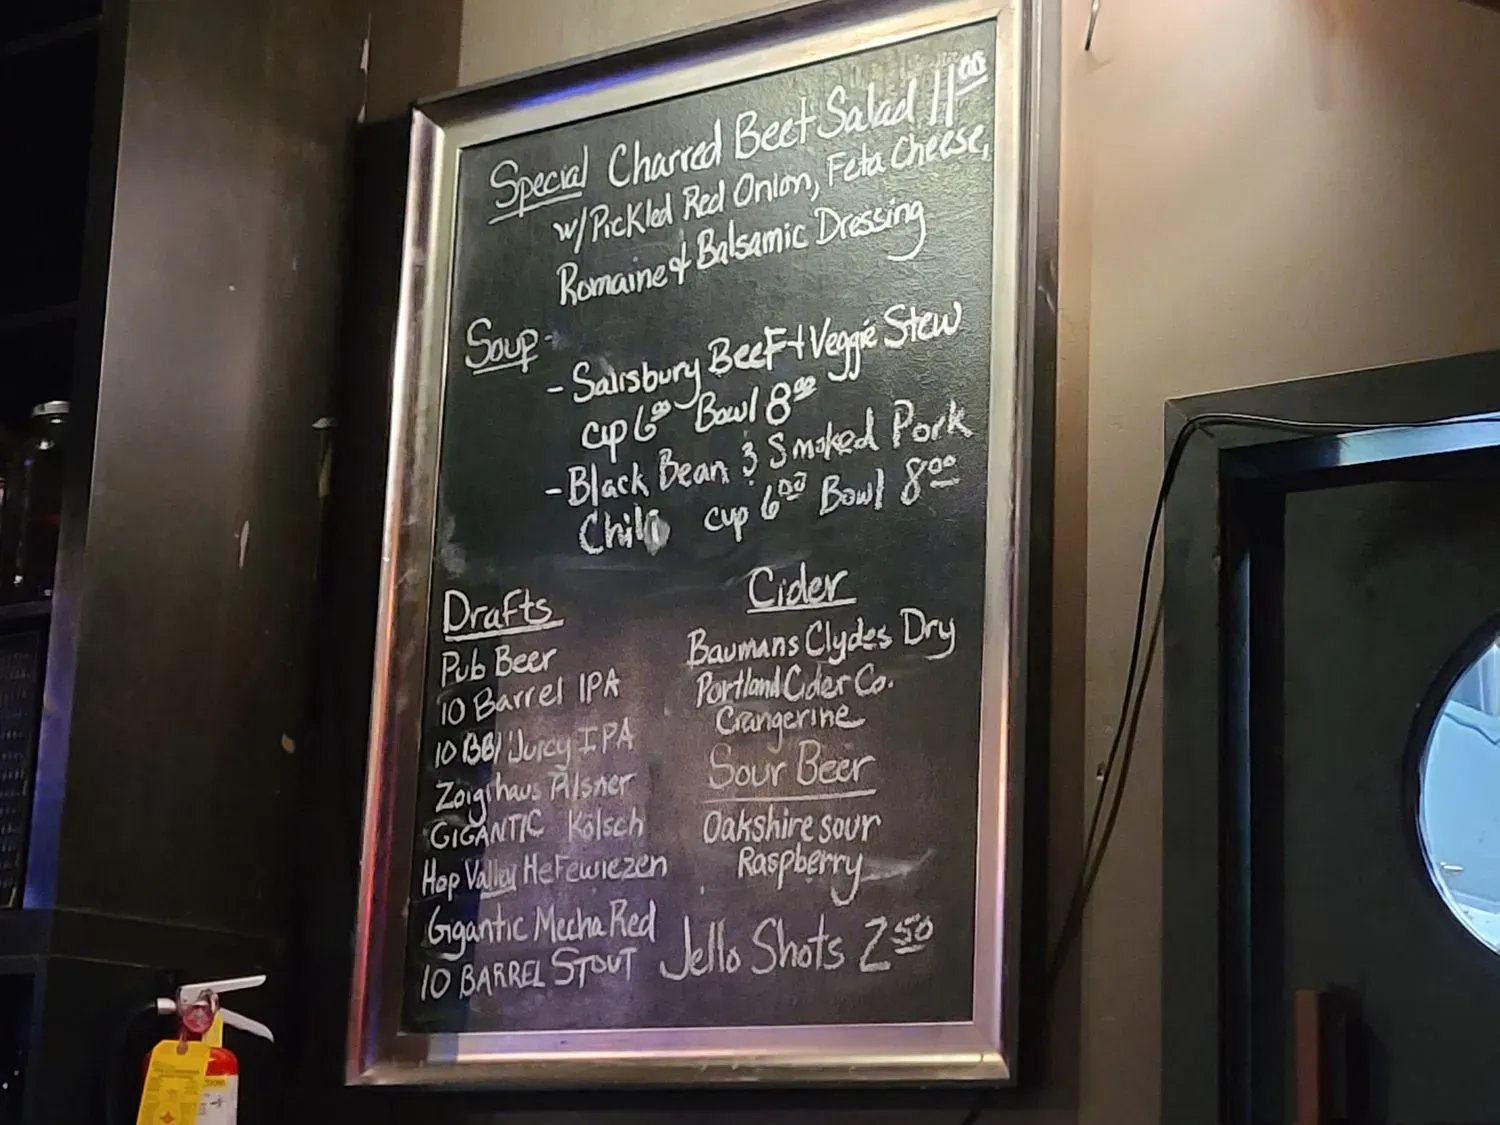 Special Charred Beet Salad 11.00
w/Pickled Red Onion, Feta Cheese,
Romaine & Balsamic Dressing
Soup-
- Salisbury Beef + Veggie Stew
cup 6.00 Bowl 8.00
- Black Bean & Smoked Pork
Chili cup 6.00 Bowl 8.00
Drafts
Pub Beer
10 Barrel IPA
10 BBl Juicy IPA
Zoiglhaus Pilsner
GIGANTIC Kölsch
Hop Valley Hefewiezen
Gigantic Mecha Red
10 BARREL STOUT
Cider
Baumans Clydes Dry
Portland Cider Co.
Crangerine
Sour Beer
Oakshire sour
Raspberry
Jello Shots 2.50